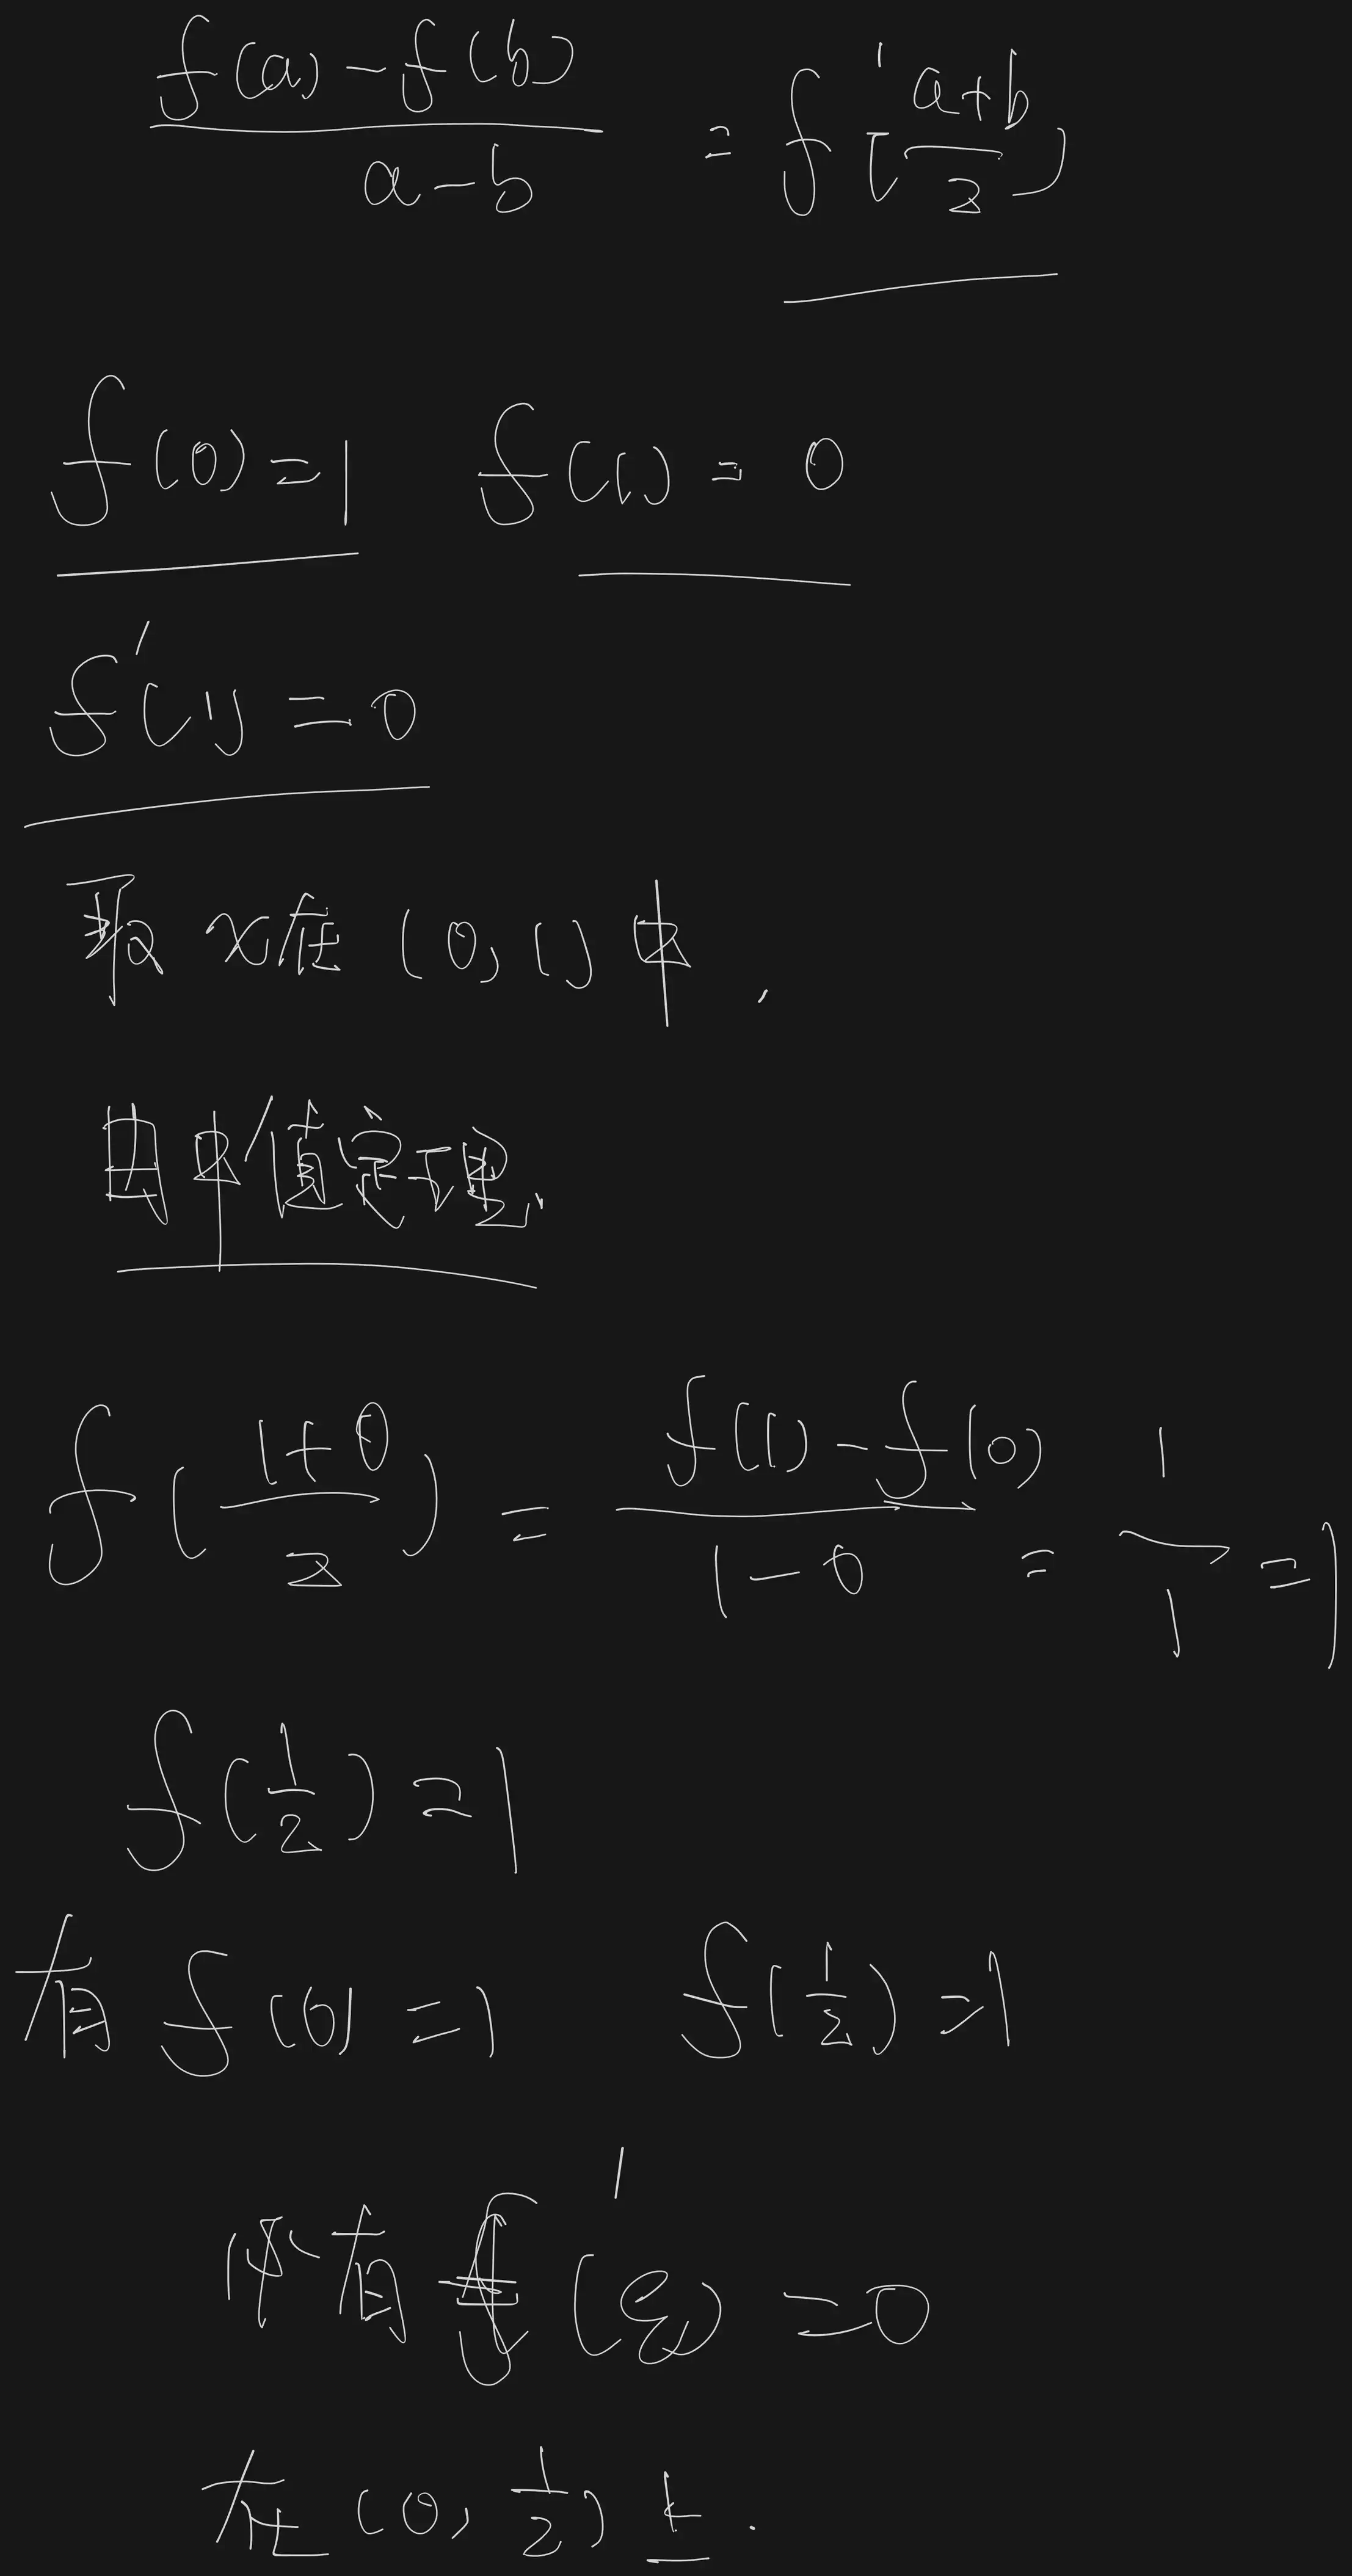 \frac{f(a)-f(b)}{a-b} = f'(\frac{a+b}{2})
f(0)=1 f(1)=0
f'(1)=0
取x在(0,1)中,
由中值定理,
f(\frac{1+0}{2}) = \frac{f(1)-f(0)}{1-0} = \frac{1}{1} = 1
f(\frac{1}{2})=1
有f(0)=1 f(\frac{1}{2})=1
必有 f'(ξ)=0
在(0,\frac{1}{2})上.